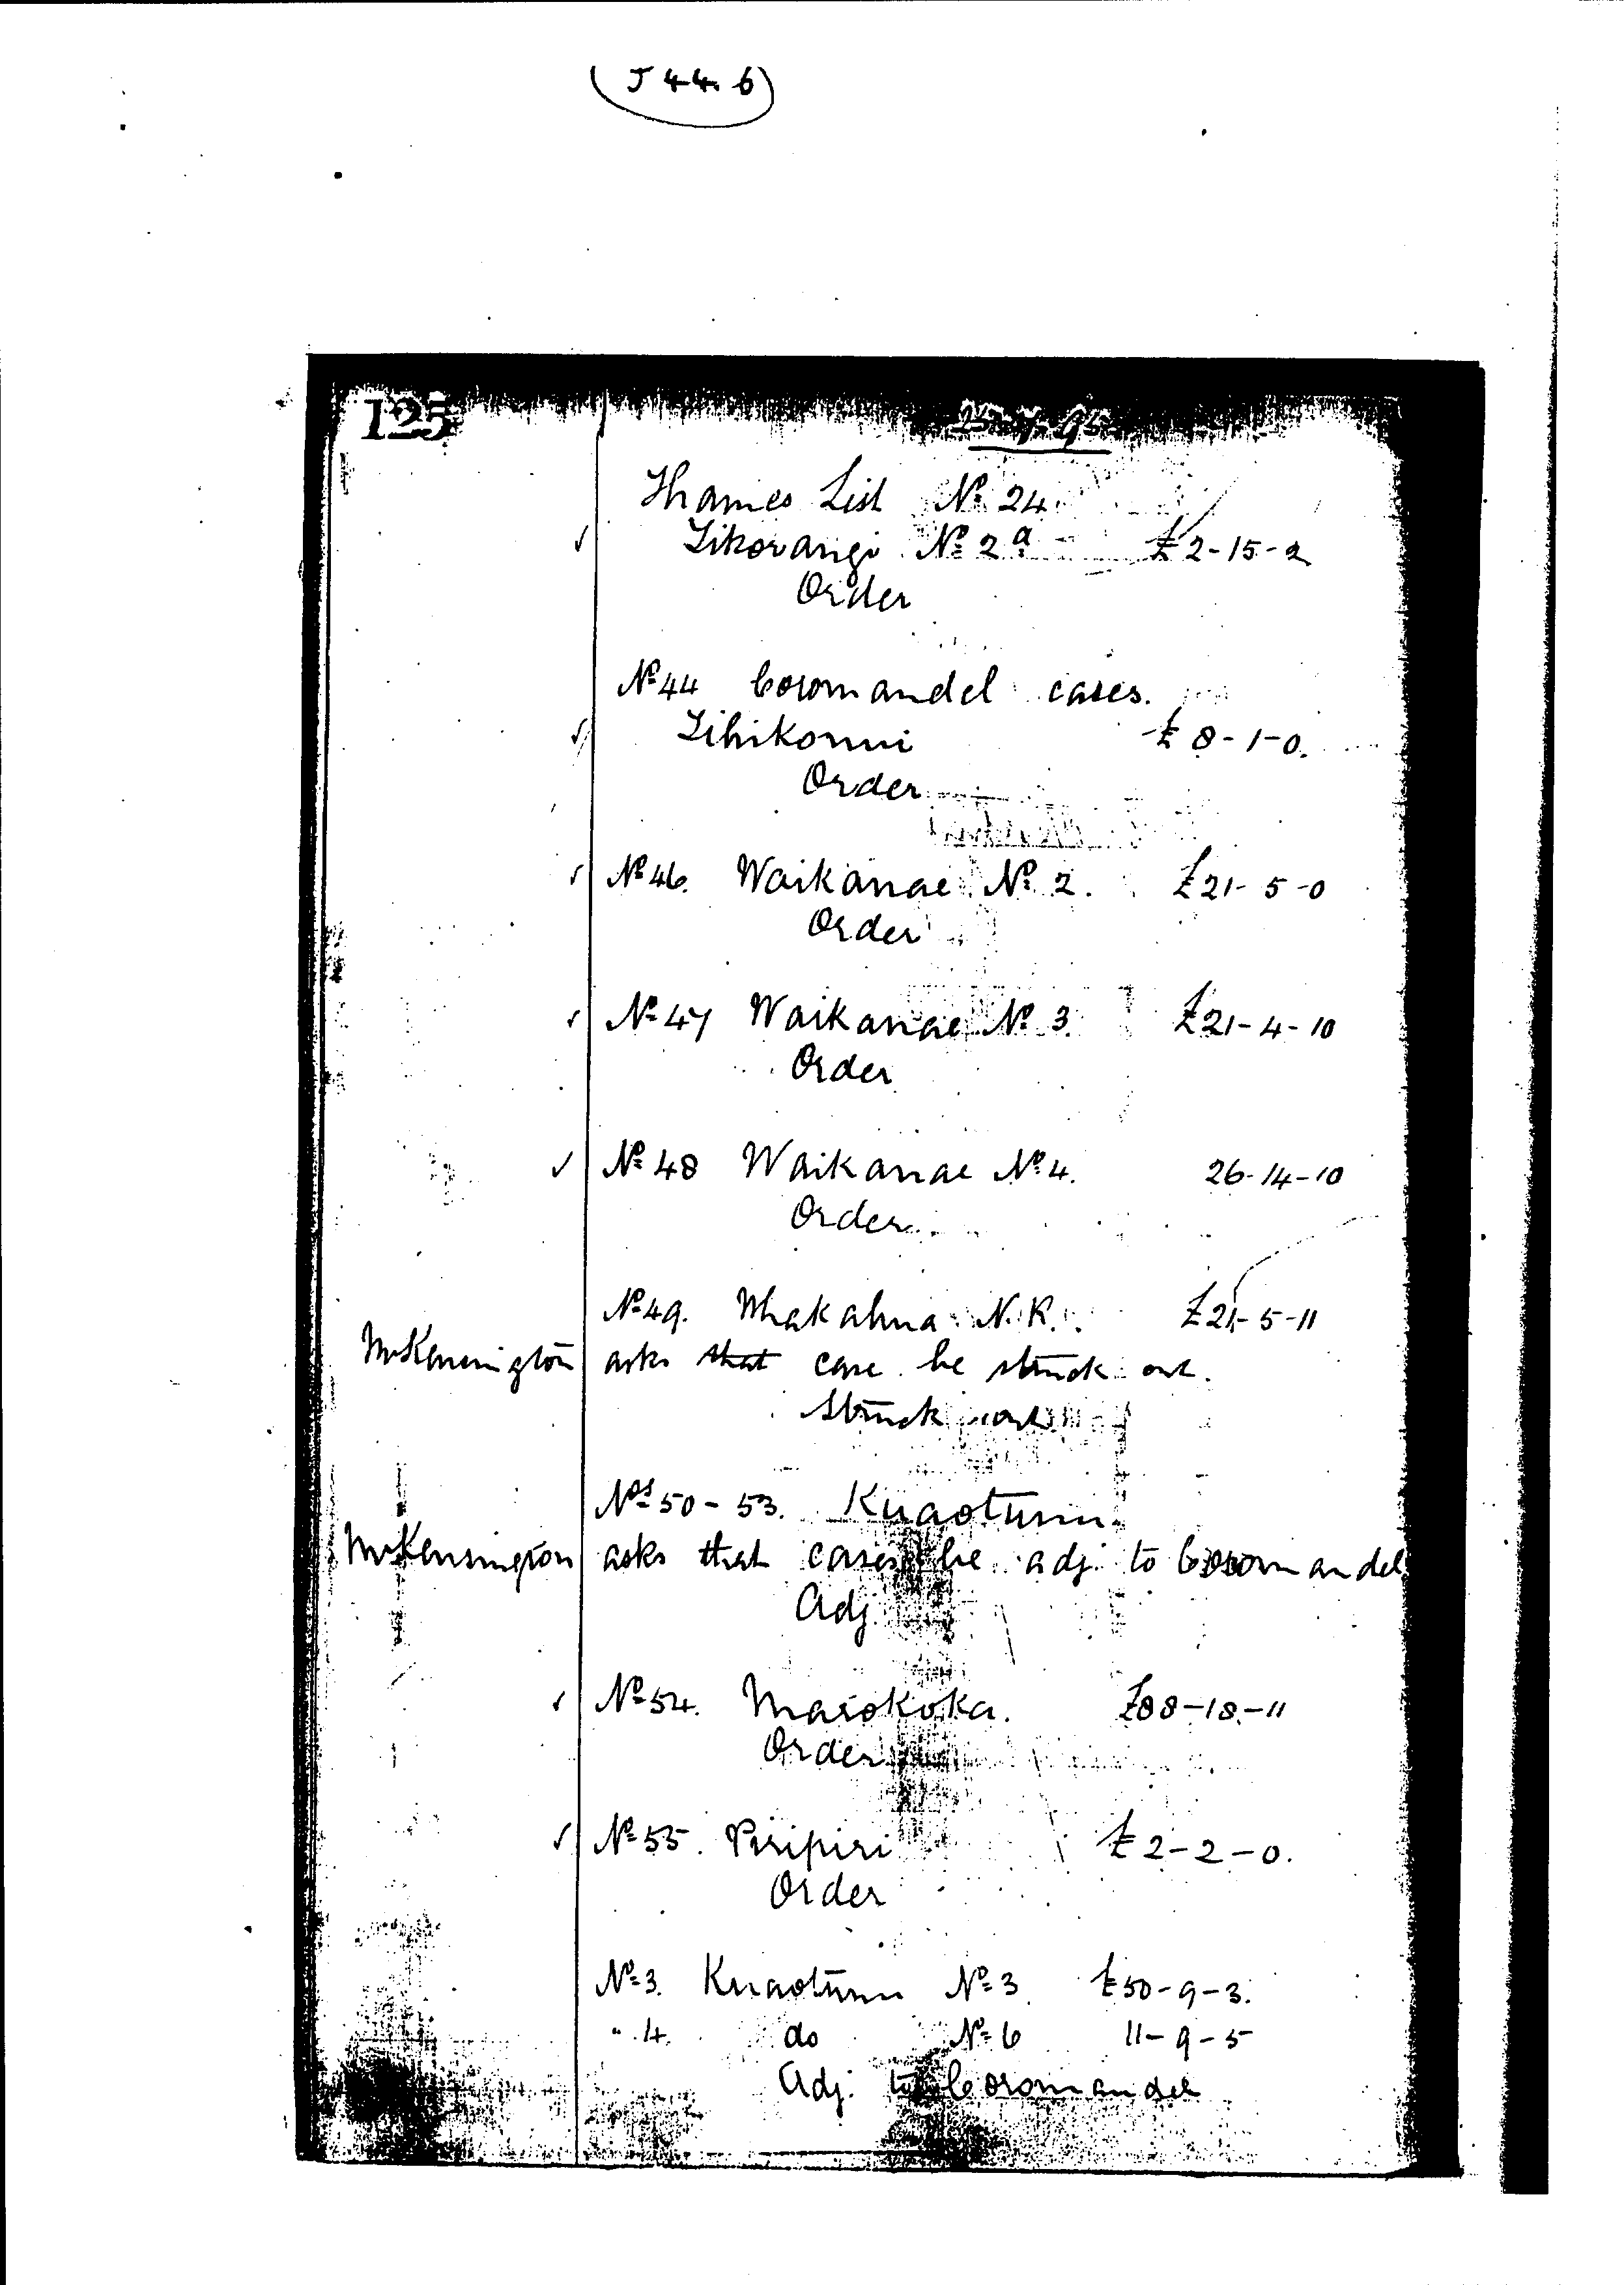 (J 44. 6)
125
25-7-95
Thames List Nº 24
✓ Tikorangi Nº 2a £2-15-2
Order
Nº 44 Coromandel cases.
✓ Tihikomui £8-1-0.
Order
✓ Nº 46. Waikanae Nº 2. £21-5-0
Order
✓ Nº 47 Waikanae Nº 3. £21-4-10
Order
✓ Nº 48 Waikanae Nº 4. 26-14-10
Order
Nº 49. Whakahua N.R. £21-5-11
Mr Kensington asks that case be struck out.
Struck out
Nos 50-53. Kuaotunu
Mr Kensington asks that cases be adj. to Coromandel
Adj.
✓ Nº 54. Marokoka. £88-18-11
Order
✓ Nº 55. Piripiri £2-2-0.
Order
Nº 3. Kuaotunu Nº 3 £50-9-3.
" 4. do Nº 6 11-9-5
Adj. to Coromandel